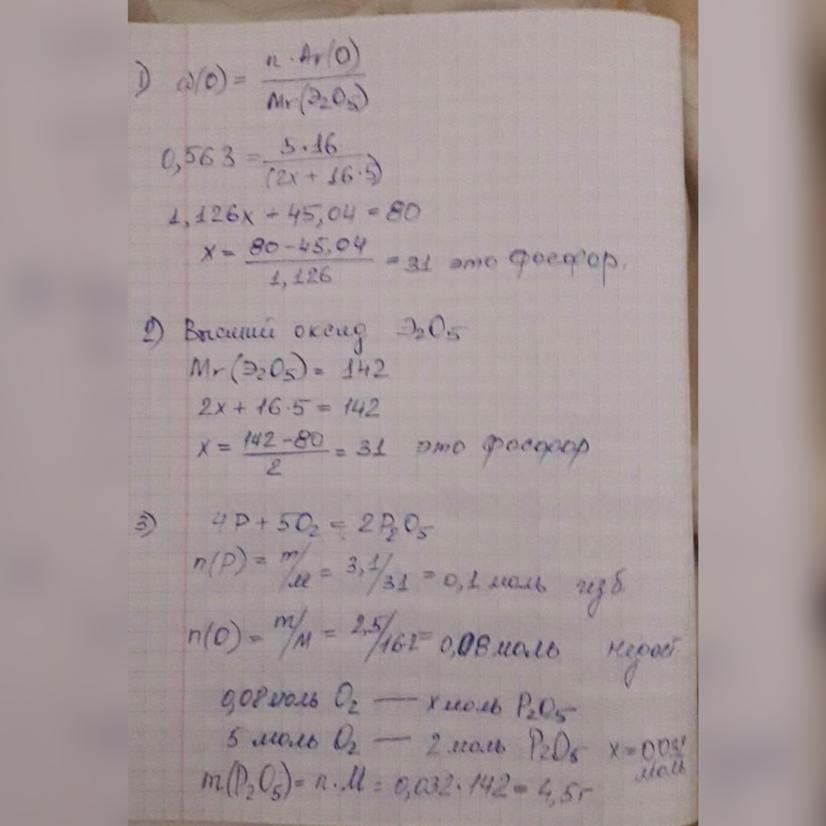 1) ω(O) = n·Ar(O) / Mr(Э₂O₅)
0,563 = 5·16 / (2x + 16·5)
1,126x + 45,04 = 80
x = 80 - 45,04 / 1,126 = 31 это фосфор.
2) Высший оксид Э₂O₅
Mr(Э₂O₅) = 142
2x + 16·5 = 142
x = 142 - 80 / 2 = 31 это фосфор
3) 4P + 5O₂ = 2P₂O₅
n(P) = m/M = 3,1/31 = 0,1 моль изб
n(O) = m/M = 2,5/16·2 = 0,08 моль недост
0,08 моль O₂ — x моль P₂O₅
5 моль O₂ — 2 моль P₂O₅ x = 0,032 моль
m(P₂O₅) = n·M = 0,032·142 = 4,5г